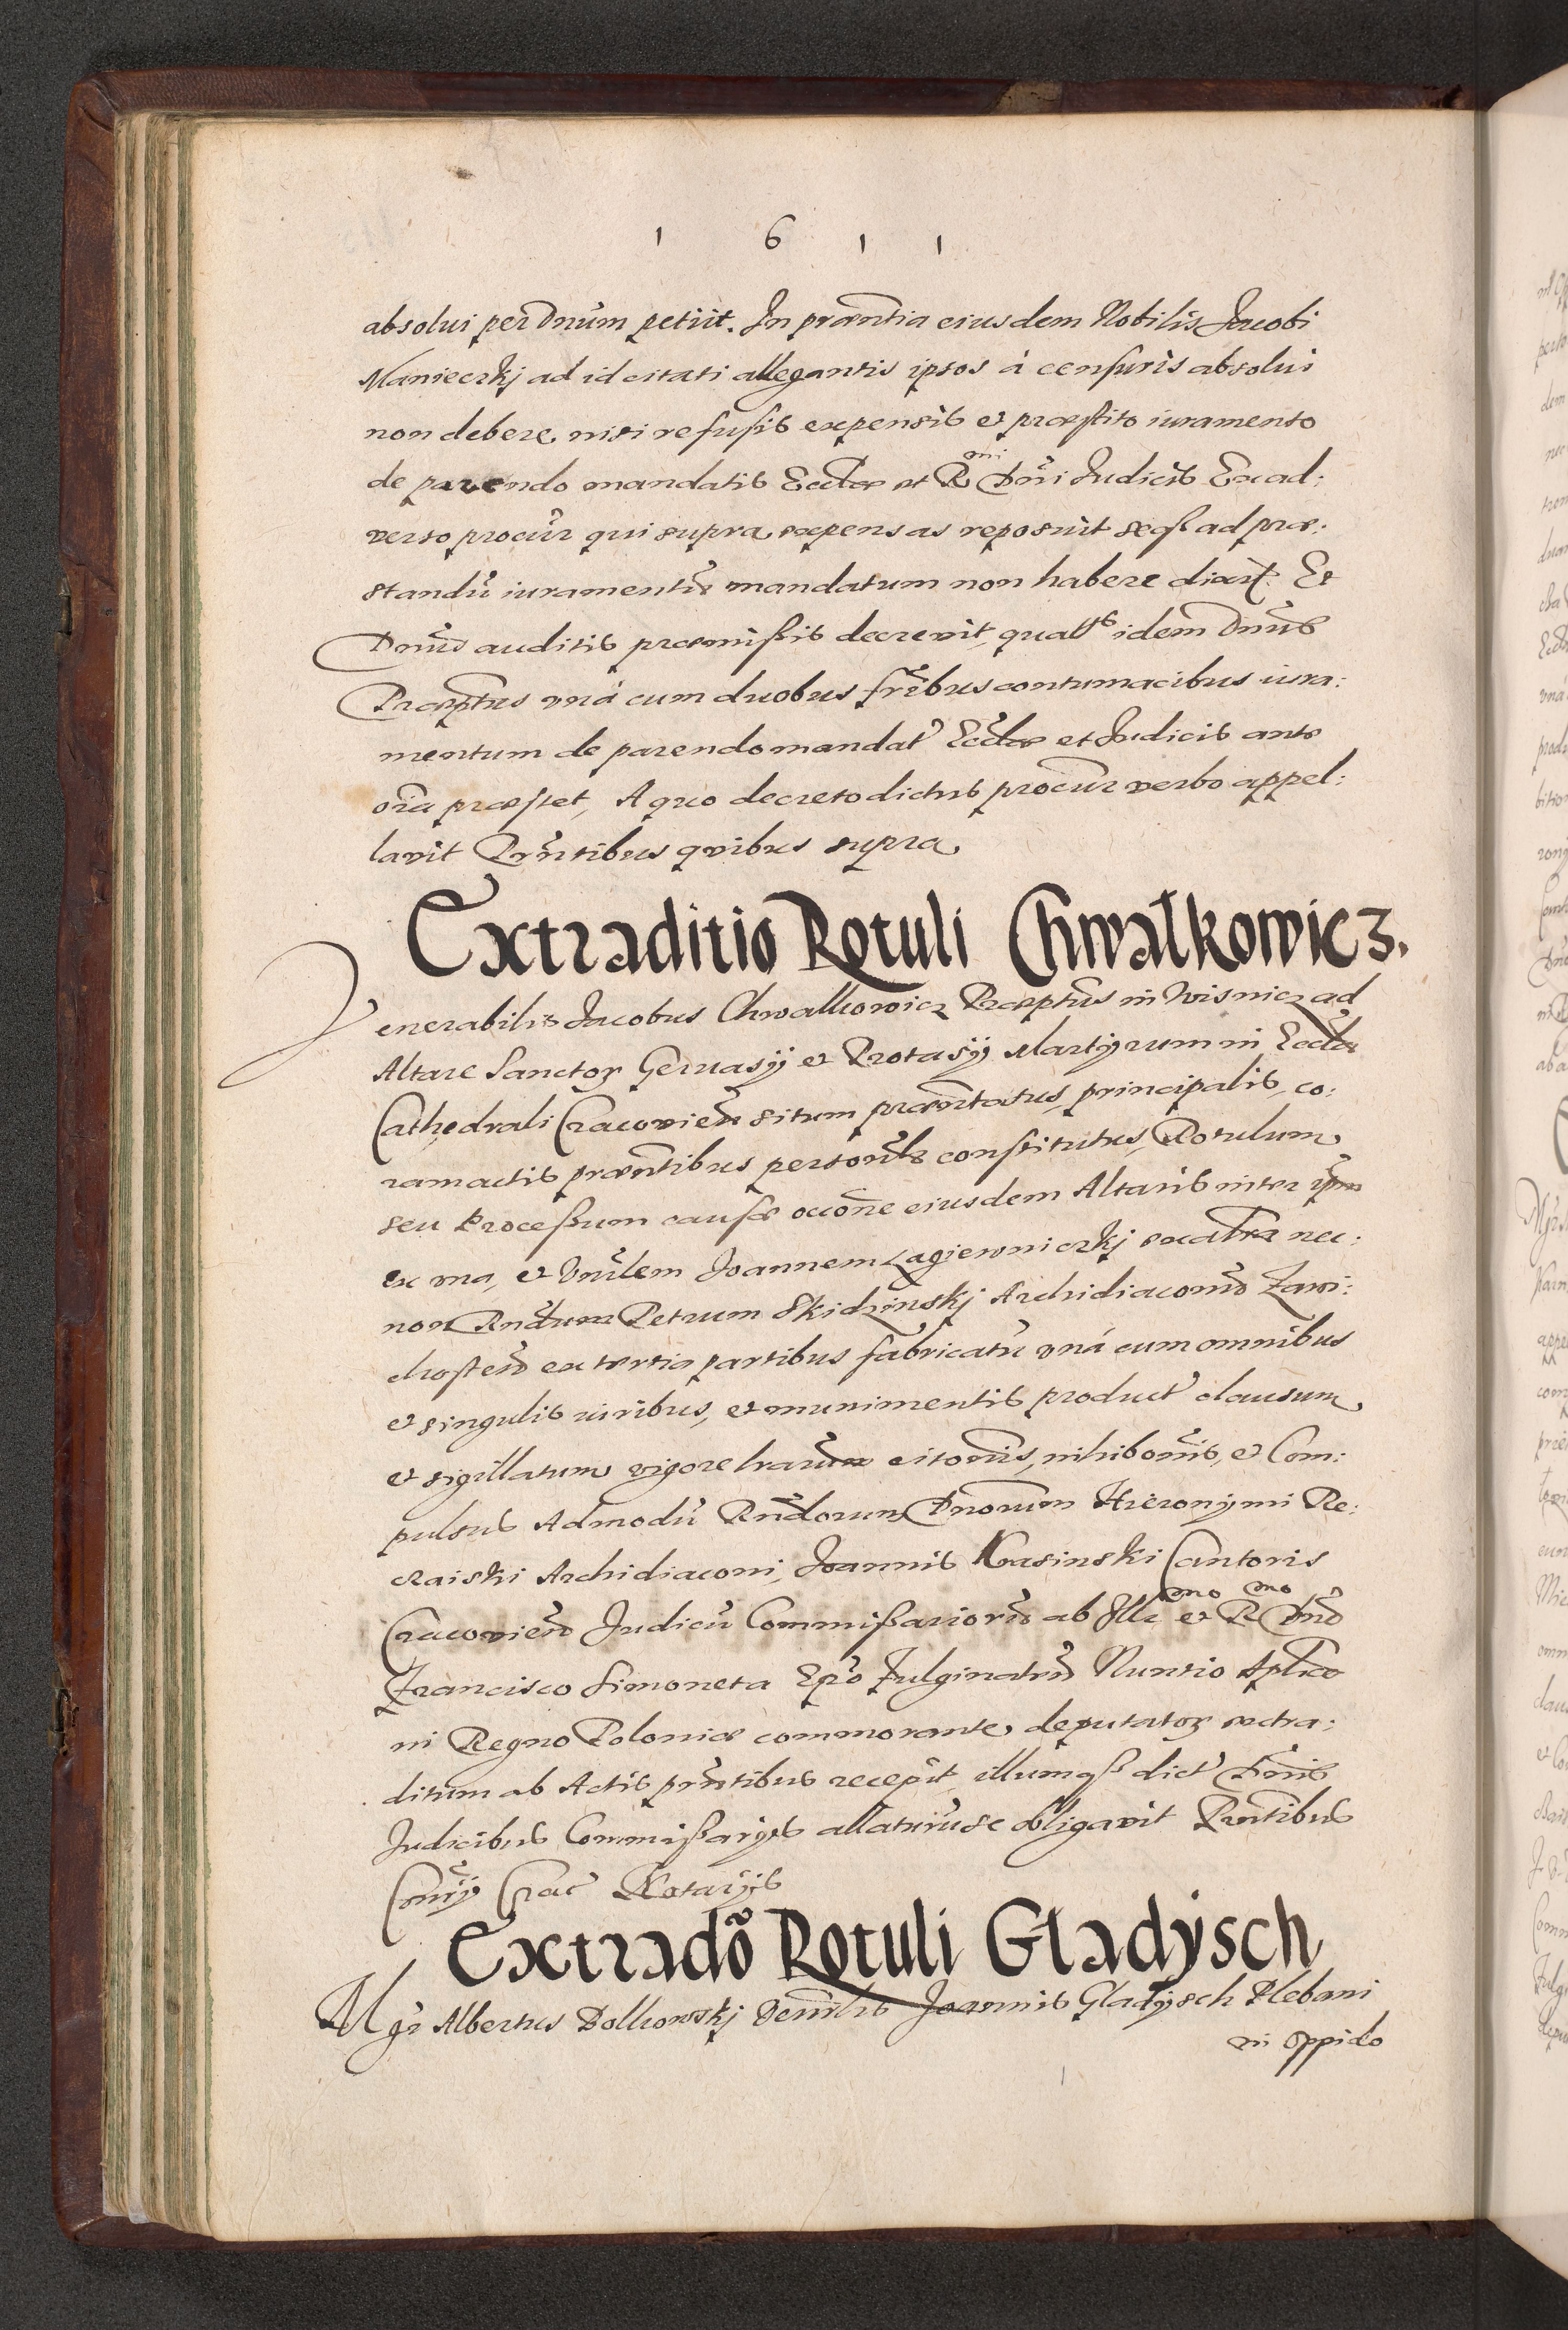 1 6 1 1
absolui per Dnum petiit. In præntia eiusdem Nobilis Jacobi
Manieczkj ad id citati allegantis ipsos à censuris absolui
non debere nisi refusis expensis et præstito iuramento
de parendo mandatis Ecclæ et R mi Dni Judicis Ex ad:
verso procur qui supra expensas reposuit seqß ad præ:
standũ iuramentũ mandatum non habere dixit. Et
Dnus auditis præmißis decrevit, quatts idem Dnus
Præptus unà cum duobus fribus contumacibus iura:
mentum de parendo mandat Ecclæ et Judicis ante
oia præstet, A quo decreto dictus procur verbo appel:
lavit Prntibus quibus supra
Extraditio Rotuli Chwałkowicz.
Venerabilis Jacobus Chwalkowicz Præptus in Wisnicz ad
Altare Sanctoꝝ Geruasij et Protasij Martyrum in Eccla
Cathedrali Cracovien situm præntatus, principalis, co:
ram actis præntibus personlr constitutus, Rotulum
seu Proceßum causæ occone eiusdem Altaris inter ipm
ex una, et Vnrlem Joannem Łagiewniczkj ex altra nec:
non Rndum Petrum Skidzinskj Archidiaconũ Zawi:
chosten ex tertia partibus fabricatũ unà cum omnibus
et singulis iuribus, et munimentis product clausum
et sigillatum vigore lrarum citonis, inhibonis, et Com:
pulsus Admodũ Rndorum Dnorum Hieronymi Re:
czaiski Archidiaconi, Joannis Krasinski Cantoris
Cracovien Judicũ Commißariorũ ab Ill mo et R mo Dno
Francisco Simoneta Epo Fulginaten Nuntio Aplico
in Regno Poloniæ commorante, deputatoꝝ extra:
ditum ab Actis prntibus recepit, illumqß dict Dnis
Judicibus Commißarijs allaturũ se obligavit Prntibus
Crac Notarijs
Extrado Rotuli Gladysch
Mgr Albertus Dolkowskj Venrlis Joannis Gladysch Plebani
in oppido